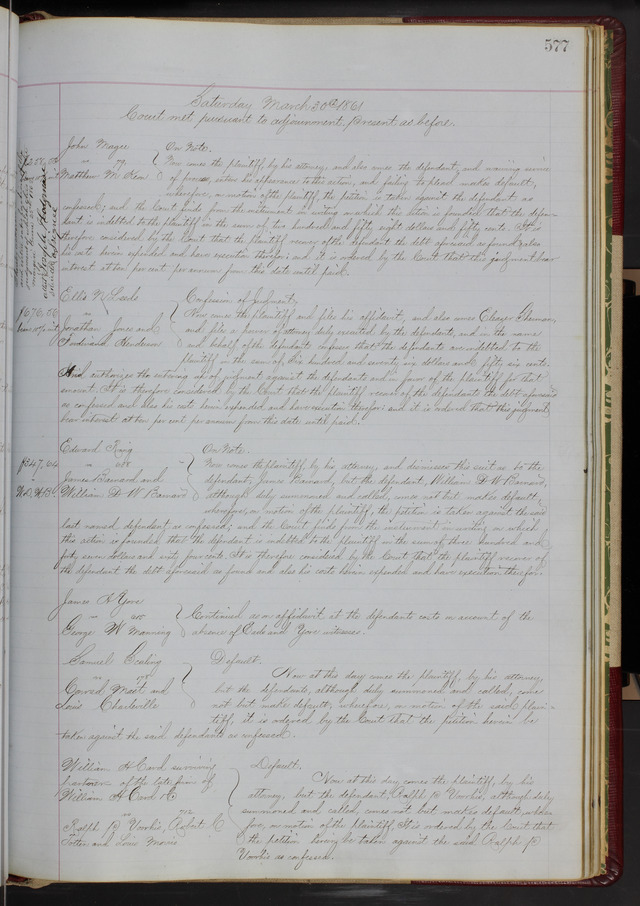 577
Saturday March 30th 1861
Court met pursuant to adjournment, Present as before.
John Magee
vs
Matthew M
On Note.
Now comes the plaintiff, by his attorney, and also comes the defendant, and waiving service
of process, enters his appearance to this action, and failing to plead makes default,
wherefore, on motion of the plaintiff, the petition is taken against the defendant as
confessed; and the Court finds from the instrument in writing on which this action is founded that the defen-
dant is indebted to the plaintiff in the sum of two hundred and fifty eight dollars and fifty cents. It is
therefore considered by the Court that the plaintiff recover of the defendant the debt aforesaid as found & also
his costs herein expended and have execution therefor; and it is ordered by the Court that this judgment bear
interest at ten per cent per annum from this date until paid.
$676.56
Ellis N Leeds
vs
Jonathan Jones and
Ferdinand Kenderson
Confession of Judgment.
Now comes the plaintiff and files his affidavit, and also comes Eleazer
and files a power of attorney duly executed by the defendants, and in the name
and behalf of the defendants confesses that the defendants are indebted to the
plaintiff in the sum of Six hundred and seventy six dollars and fifty six cents.
And authorizes the entering up of judgment against the defendants and in favor of the plaintiff for that
amount. It is therefore considered by the Court that the plaintiff recover of the defendants the debt aforesaid
as confessed and also his costs herein expended and have execution therefor; and it is ordered that this judgment
bear interest at ten per cent per annum from this date until paid.
$347.64
Edward King
vs
James Barnard and
William D W Barnard
On Note.
Now comes the plaintiff, by his attorney, and dismisses this suit as to the
defendant, James Barnard, but the defendant, William D W Barnard,
although duly summoned and called, comes not but makes default,
wherefore, on motion of the plaintiff, the petition is taken against the said
last named defendant as confessed; and the Court finds from the instrument in writing on which
this action is founded, that the defendant is indebted to the plaintiff in the sum of three hundred and
forty seven dollars and sixty four cents. It is therefore considered by the Court that the plaintiff recover of
the defendant the debt aforesaid as found and also his costs herein expended and have execution therefor.
James H Yore
vs
George W Manning
Continued as on affidavit at the defendants costs on account of the
absence of Eads and Yore witnesses.
Samuel
vs
Conrad Mast and
Louis Charleville
Default.
Now at this day comes the plaintiff, by his attorney,
but the defendants, although duly summoned and called, come
not but make default, wherefore, on motion of the said plain-
tiff, it is ordered by the Court that the petition herein be
taken against the said defendants as confessed.
William H Card surviving
partner of the late firm of
William H Card & Co
vs
Ralph P Voorhis, Robert C
and Louis
Default.
Now at this day comes the plaintiff, by his
attorney, but the defendant, Ralph P Voorhis, although duly
summoned and called, comes not but makes default, where-
fore, on motion of the plaintiff, It is ordered by the Court that
the petition herein be taken against the said Ralph P
Voorhis as confessed.